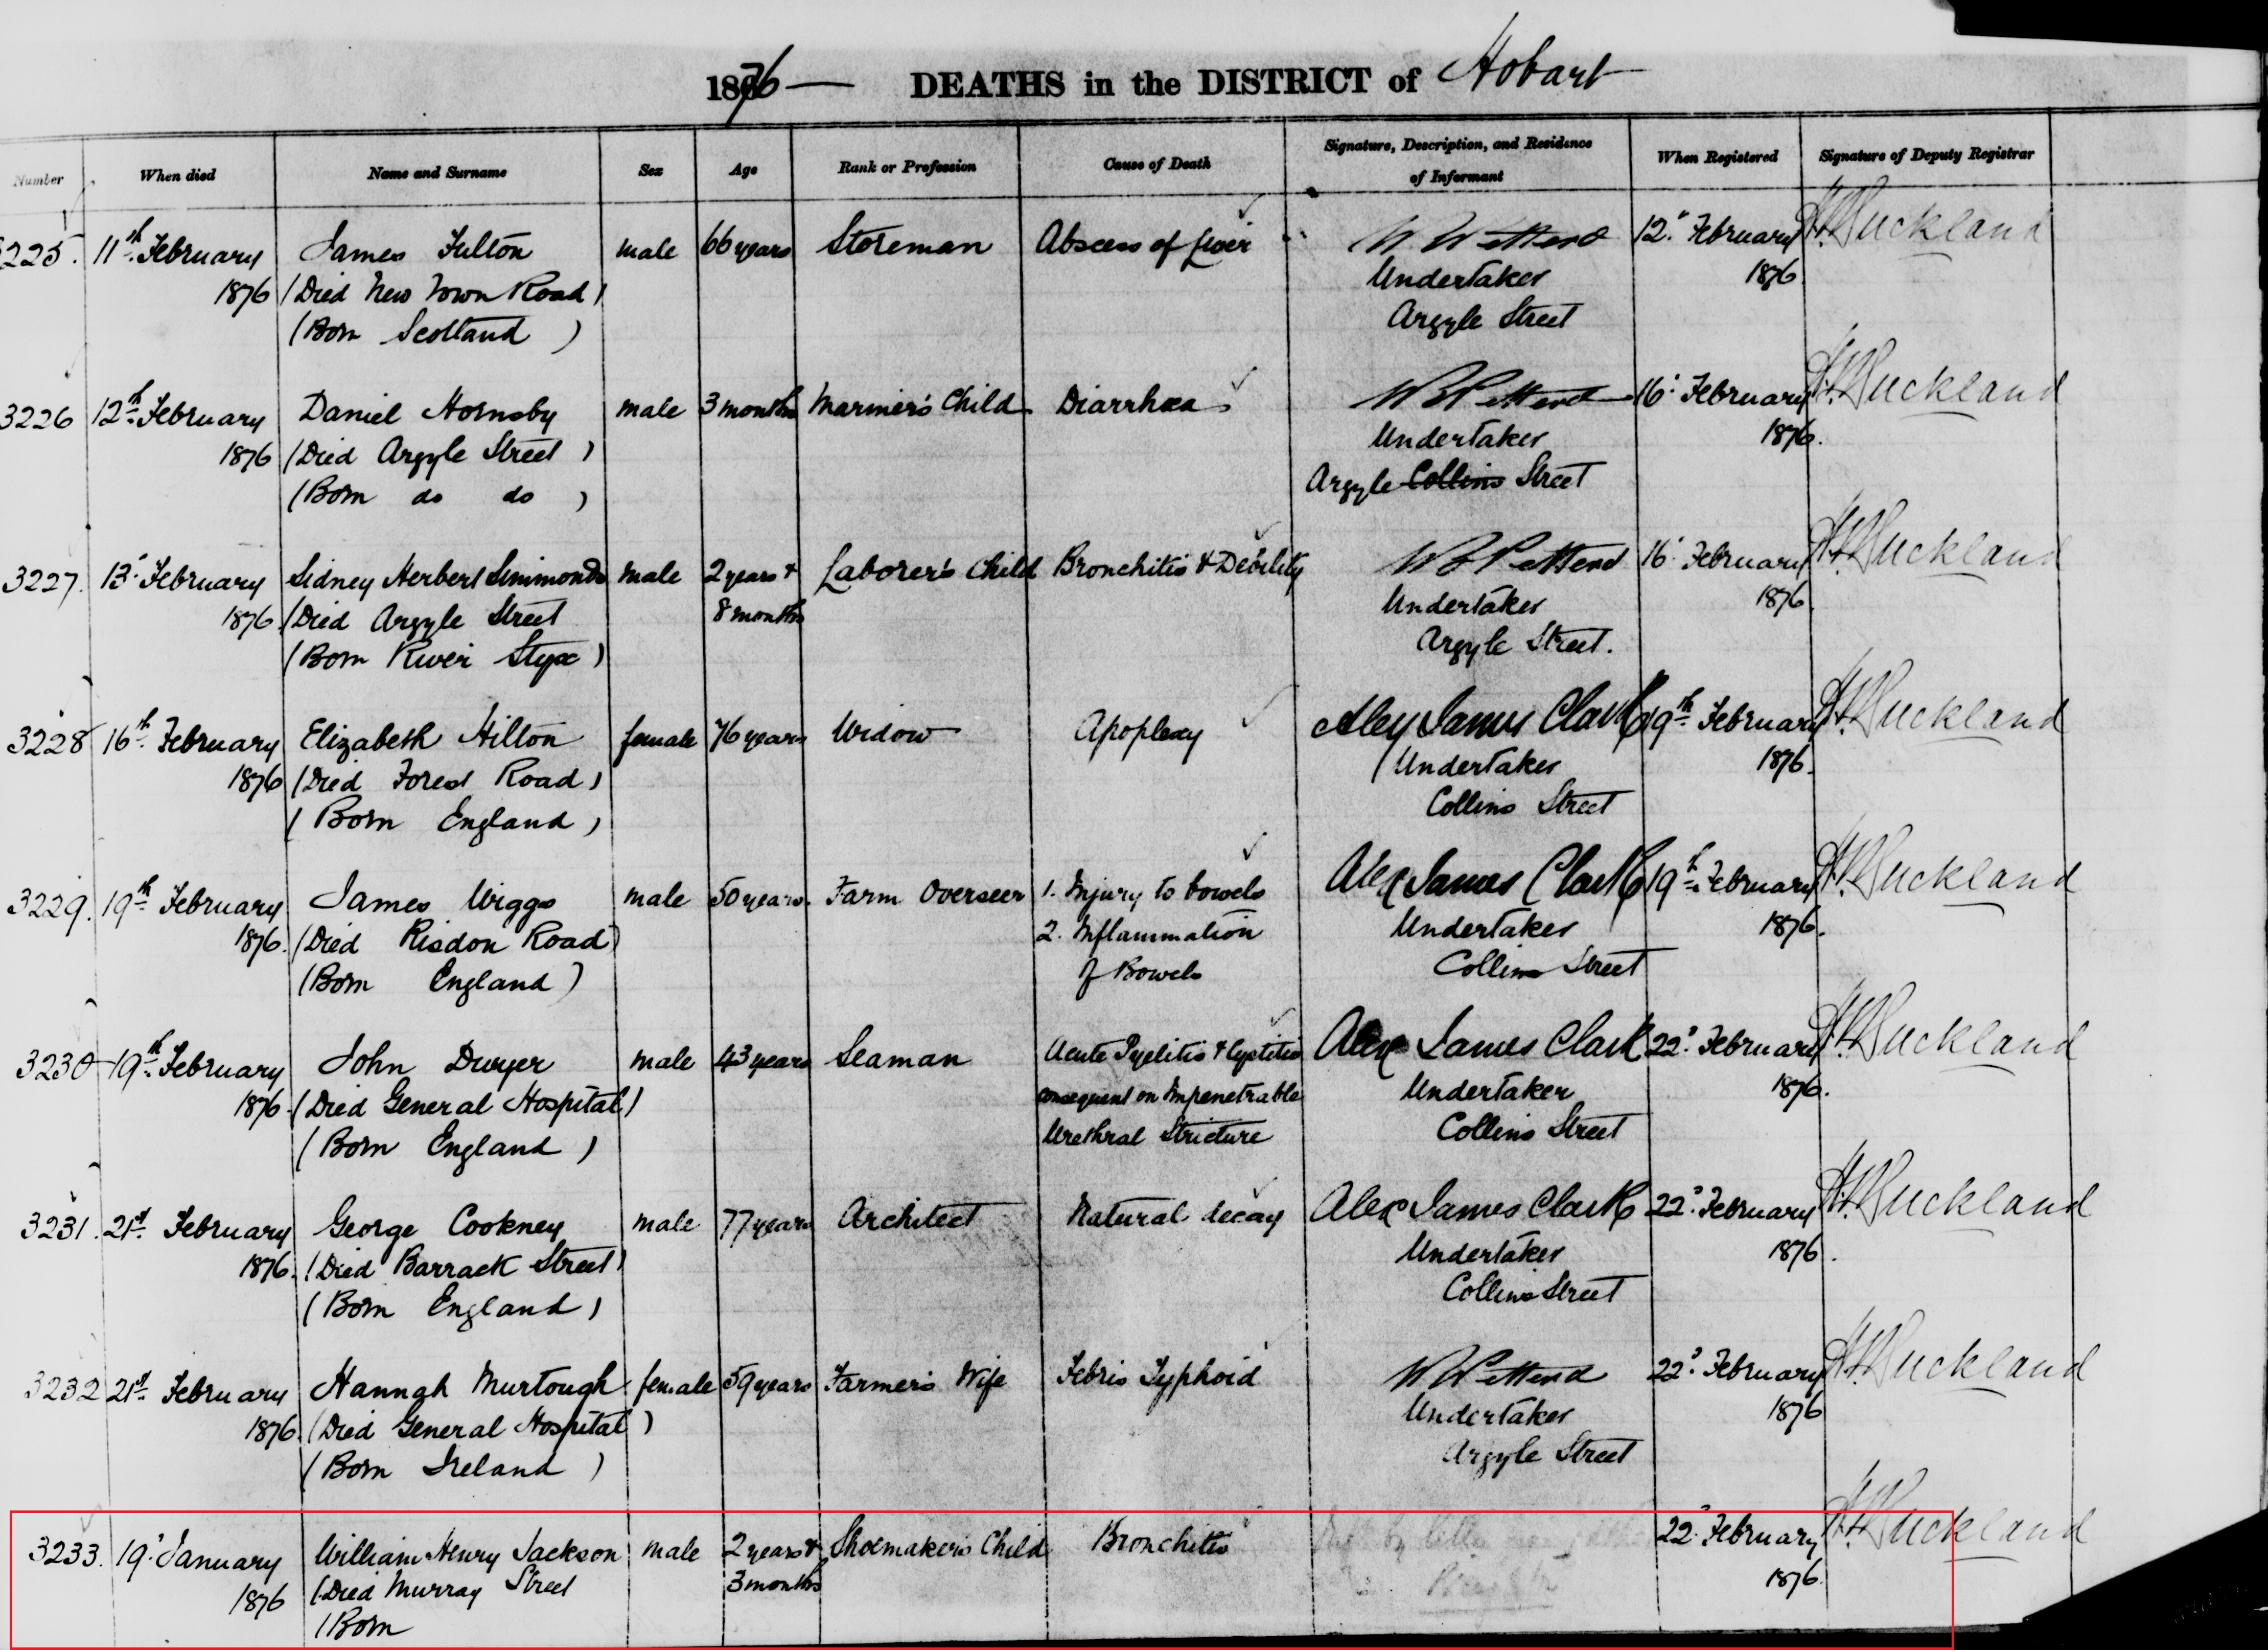 1876 — DEATHS in the DISTRICT of Hobart
Number When died Name and Surname Sex Age Rank or Profession Cause of Death Signature, Description, and Residence of Informant When Registered Signature of Deputy Registrar
3225. 11th February James Fulton male 66 years Storeman Abscess of Liver 12" February Buckland
1876 (Died New Town Road) Undertaker 1876
(Born Scotland ) Argyle Street
3226 12th February Daniel Hornsby male 3 months Mariner's Child Diarrhœa 16" February Buckland
1876 (Died Argyle Street ) Undertaker 1876.
(Born do do ) Argyle Collins Street
3227. 13" February Sidney Herbert Simmonds male 2 years & Laborer's Child Bronchitis & Debility 16" February Buckland
1876 (Died Argyle Street 8 months Undertaker 1876
(Born River Styx ) Argyle Street.
3228 16th February Elizabeth Hilton female 76 years Widow Apoplexy Alex James Clark 19th February Buckland
1876 (Died Forest Road ) Undertaker 1876.
( Born England ) Collins Street
3229. 19th February James Wiggs male 50 years. Farm Overseer 1. Injury to bowels Alex James Clark 19th February Buckland
1876. (Died Risdon Road) 2. Inflammation Undertaker 1876.
(Born England ) of Bowels Collins Street
3230 19th February John Dwyer male 43 years Seaman Acute Pyelitis & Cystitis Alex James Clark 22" February Buckland
1876. (Died General Hospital) consequent on Impenetrable Undertaker 1876.
( Born England ) Urethral Stricture Collins Street
3231. 21st February George Cookney male 77 years Architect Natural decay Alex James Clark 22" February Buckland
1876. (Died Barrack Street) Undertaker 1876.
( Born England ) Collins Street
3232 21st February Hannah Murtough female 59 years Farmer's Wife Febris Typhoid 22" February Buckland
1876. (Died General Hospital ) Undertaker 1876
( Born Ireland ) Argyle Street
3233. 19" January William Henry Jackson male 2 years & Shoemaker's Child Bronchitis 22" February Buckland
1876 (Died Murray Street 3 months 1876.
(Born